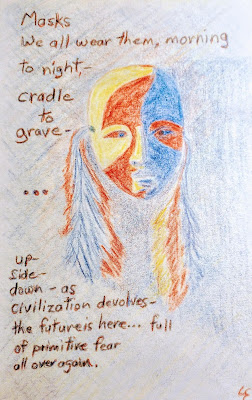 Masks
We all wear them, morning
to night,-
cradle
to
grave-
...
up-
side-
down - as
civilization devolves-
the future is here... full
of primitive fear
all over again.